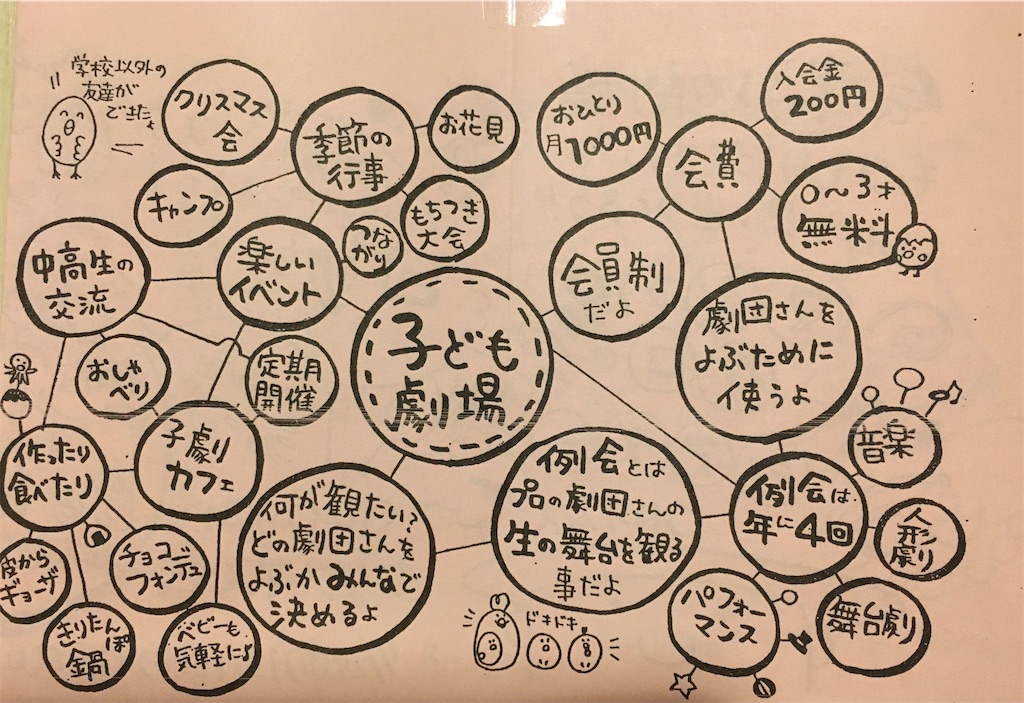 学校以外の
友達が
できたよ
クリスマス
会
季節の
行事
お花見
キャンプ
もちつき
大会
つな
がり
中高生の
交流
楽しい
イベント
おしゃ
べり
定期
開催
作ったり
食べたり
子劇
カフェ
皮から
ギョーザ
チョコ
フォンデュ
きりたんぽ
鍋
ベビーも
気軽に♪
子ども
劇場
何が観たい?
どの劇団さんを
よぶかみんなで
決めるよ
おひとり
月1000円
会費
入会金
200円
0〜3才
無料
会員制
だよ
劇団さんを
よぶために
使うよ
例会とは
プロの劇団さんの
生の舞台を観る
事だよ
例会は
年に4回
音楽
人形
劇
舞台劇
パフォー
マンス
ドキドキ